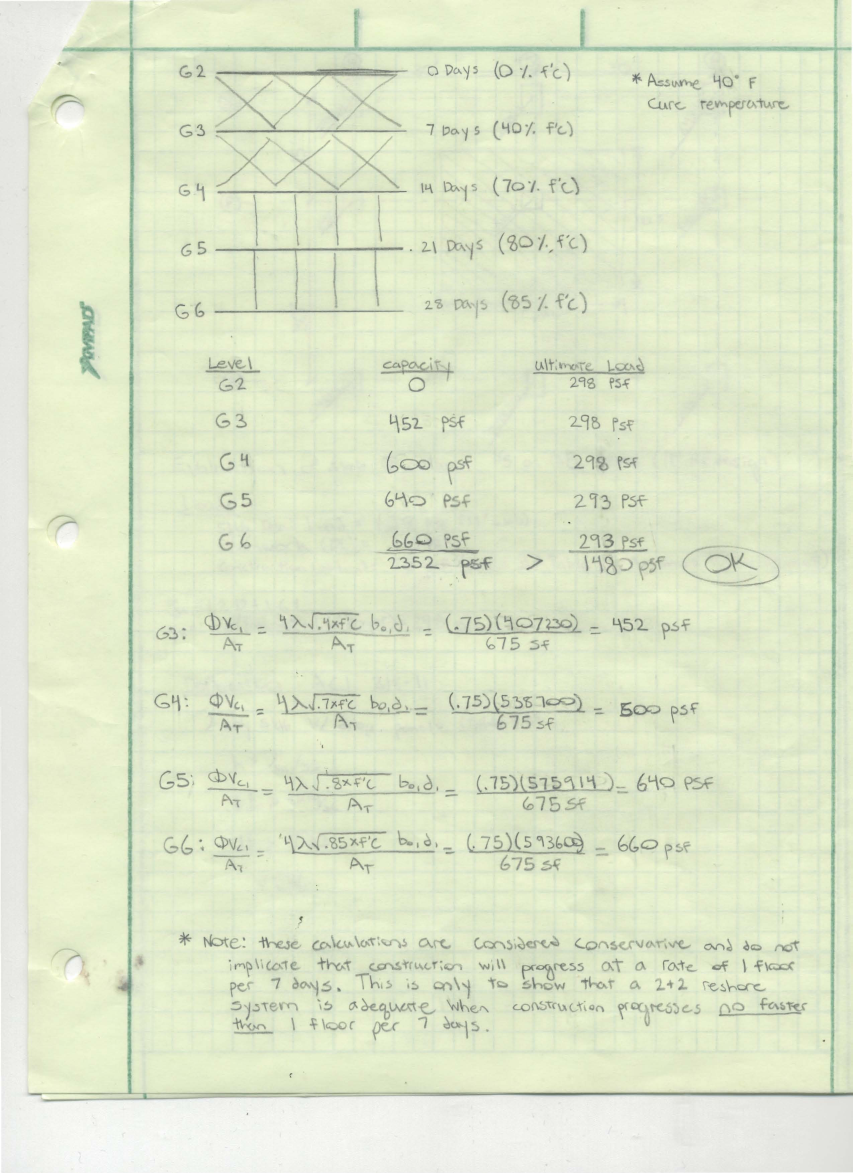 G2 0 Days (0% f'c)
* Assume 40° F
Cure temperature
G3 7 Days (40% f'c)
G4 14 Days (70% f'c)
G5 21 Days (80% f'c)
G6 28 Days (85% f'c)
AMPAD
Level capacity ultimate Load
G2 0 298 PSF
G3 452 psf 298 PSF
G4 600 psf 298 PSF
G5 640 PSF 293 PSF
G6 660 PSF 293 PSF
2352 psf > 1480 psf OK
G3: ΦVc₁/A_T = 4λ√.4xf'c b₀,d₁/A_T = (.75)(407230)/675 SF = 452 psf
G4: ΦVc₁/A_T = 4λ√.7xf'c b₀,d₁/A_T = (.75)(538700)/675 SF = 500 psf
G5: ΦVc₁/A_T = 4λ√.8xf'c b₀,d₁/A_T = (.75)(575914)/675 SF = 640 PSF
G6: ΦVc₁/A_T = 4λ√.85xf'c b₀,d₁/A_T = (.75)(593600)/675 SF = 660 psf
* Note: these calculations are considered conservative and do not
implicate that construction will progress at a rate of 1 floor
per 7 days. This is only to show that a 2+2 reshore
system is adequate when construction progresses no faster
than 1 floor per 7 days.